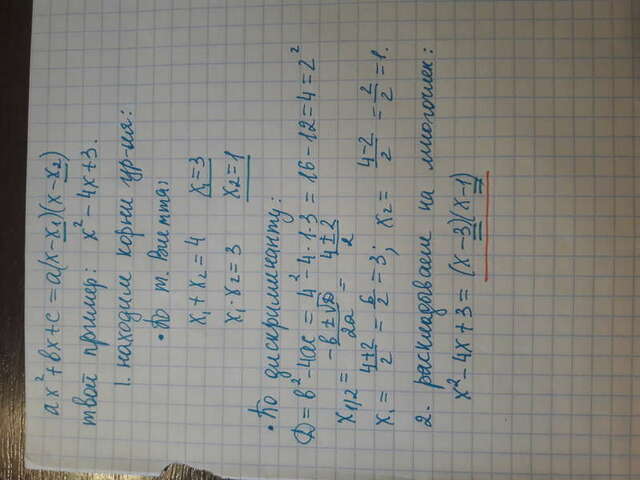 ax² + bx + c = a(x - x₁)(x - x₂)
твой пример: x² - 4x + 3.
1. находим корни ур-ния:
• По т. Виетта:
x₁ + x₂ = 4 x₁ = 3
x₁ · x₂ = 3 x₂ = 1
• По дискриминанту:
D = b² - 4ac = 4² - 4·1·3 = 16 - 12 = 4 = 2²
x₁,₂ = (-b ± √D)/2a = (4 ± 2)/2
x₁ = (4+2)/2 = 6/2 = 3; x₂ = (4-2)/2 = 2/2 = 1.
2. раскладываем на многочлен:
x² - 4x + 3 = (x - 3)(x - 1)